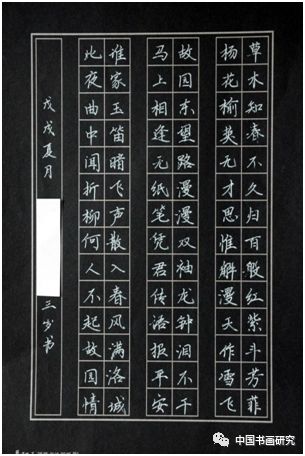 草木知春不久归百般红紫斗芳菲
杨花榆荚无才思惟解漫天作雪飞
故园东望路漫漫双袖龙钟泪不干
马上相逢无纸笔凭君传语报平安
谁家玉笛暗飞声散入春风满洛城
此夜曲中闻折柳何人不起故园情
戊戌夏月
三少书
中国书画研究